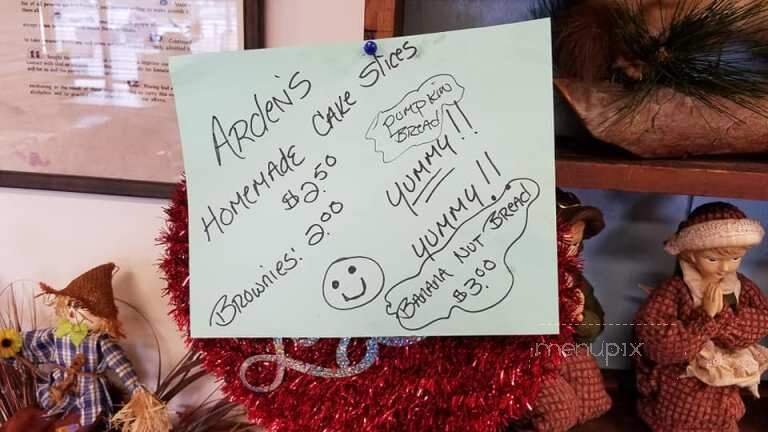 ARDEN'S
HOMEMADE CAKE SLICES
$2.50
BROWNIES: 2.00
PUMPKIN
BREAD
YUMMY!!
YUMMY!!
BANANA NUT BREAD
$3.00
menupix